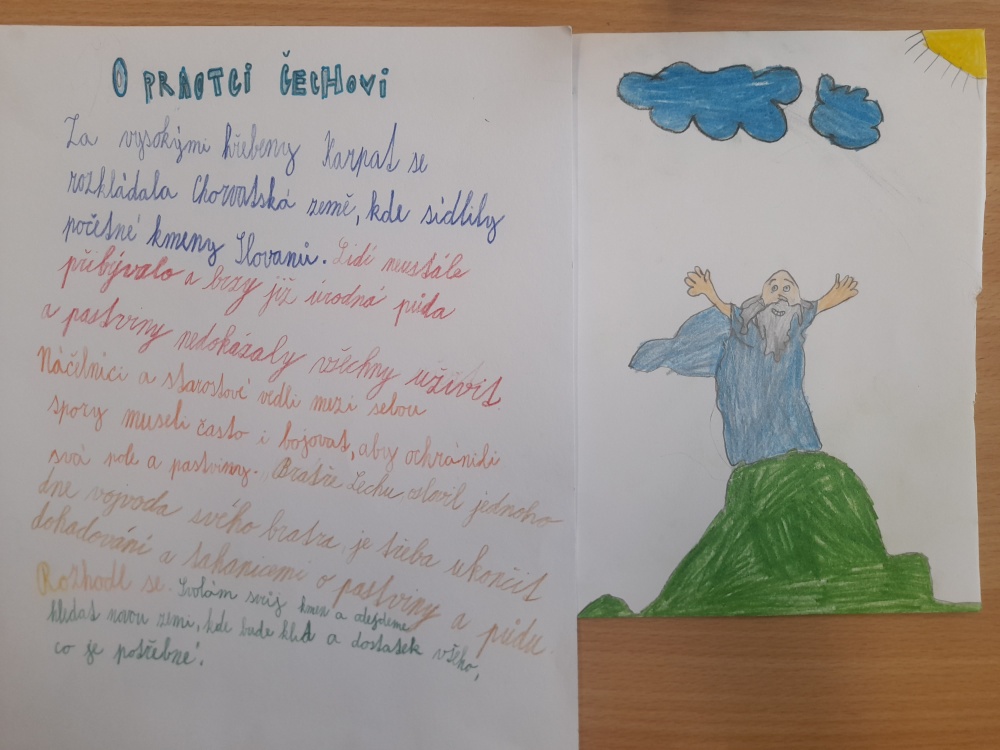 O PRAOTCI ČECHOVI
Za vysokými hřebeny Karpat se
rozkládala Chorvatská země, kde sídlily
početné kmeny Slovanů. Lidí neustále
přibývalo a brzy již úrodná půda
a pastviny nedokázaly všechny uživit.
Náčelníci a starostové vedli mezi sebou
spory museli často i bojovat, aby ochránili
svá pole a pastviny. Bratře Lechu oslovil jednoho
dne vojvoda svého bratra, je třeba ukončit
dohadování a tahanicemi o pastviny a půdu.
Rozhodl se. Svolám svůj kmen a odejdeme
hledat novou zemi, kde bude klid a dostatek všeho,
co je potřebné.